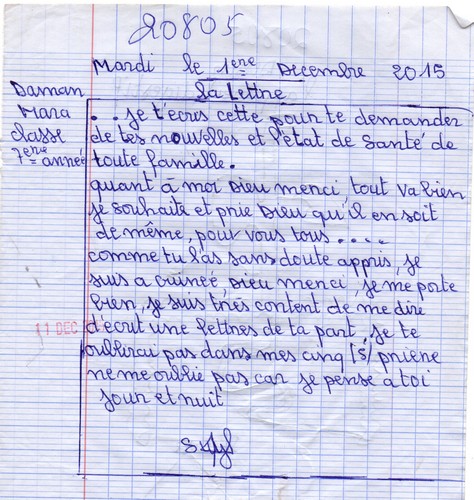 20805
Mardi le 1ere Decembre 2015
La Lettre
Daman
Mara
classe
7eme année
...je t'ecris cette pour te demander
de tes nouvelles et l'etat de santé de
toute famille.
quant à moi Dieu menci, tout va bien
je souhaite et prie Dieu qu'il en soit
de même, pour vous tous....
comme tu l'as sans doute appris, je
suis a Guineé, Dieu menci, je me porte
bien, je suis triés content de me dire
d'ecrut une lettres de ta part, je te
oublirai pas dans mes cinq [5] priene
ne me oublie pas car je pense à toi
Jour et nuit
11 DEC